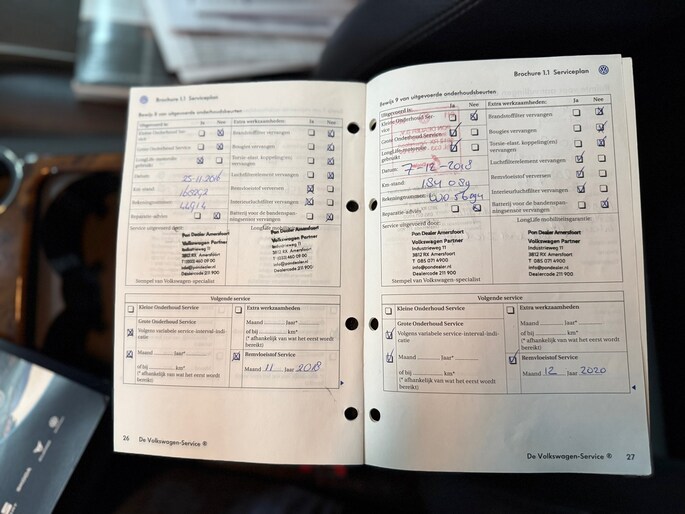 Brochure 1.1 Serviceplan
Bewijs 8 van uitgevoerde onderhoudsbeurten
Uitgevoerd is: Ja Nee
Kleine Onderhoud Ser-
vice
Grote Onderhoud Service
LongLife motorolie
gebruikt
Datum: 25-11-2016
Km-stand:
Rekeningnummer:
Reparatie advies:
Service uitgevoerd door:
Extra werkzaamheden: Ja Nee
Brandstoffilter vervangen
Bougies vervangen
Torsie-elast. koppeling(en)
vervangen
Luchtfilterelement vervangen
Remvloeistof verversen
Interieurluchtfilter vervangen
Batterij voor de bandenspan-
ningsensor vervangen
Pon Dealer Amersfoort
Volkswagen Partner
Industrieweg 11
3812 RX Amersfoort
T (033) 460 09 00
info@pondealer.nl
Dealercode 211 900
Pon Dealer Amersfoort
Volkswagen Partner
Industrieweg 11
3812 RX Amersfoort
T (033) 460 09 00
info@pondealer.nl
Dealercode 211 900
Stempel van Volkswagen-specialist
Volgende service
Kleine Onderhoud Service
Grote Onderhoud Service
Volgens variabele service-interval-indi-
catie
Maand Jaar*
of bij km*
(* afhankelijk van wat het eerst wordt
bereikt)
Extra werkzaamheden
Maand Jaar*
of bij km*
(* afhankelijk van wat het eerst wordt
bereikt)
Remvloeistof Service
Maand 11 Jaar 2018
26 De Volkswagen-Service ®
Brochure 1.1 Serviceplan
Bewijs 9 van uitgevoerde onderhoudsbeurten
Uitgevoerd is: Ja Nee
Kleine Onderhoud Ser-
vice
LongLife motorolie
gebruikt
Datum: 7-12-2018
Km-stand: 184 089
Rekeningnummer:
Reparatie advies:
Service uitgevoerd door:
Extra werkzaamheden: Ja Nee
Brandstoffilter vervangen
Bougies vervangen
Torsie-elast. koppeling(en)
vervangen
Luchtfilterelement vervangen
Remvloeistof verversen
Interieurluchtfilter vervangen
Batterij voor de bandenspan-
ningsensor vervangen
LongLife mobiliteitsgarantie:
Pon Dealer Amersfoort
Volkswagen Partner
Industrieweg 11
3812 RX Amersfoort
T 085 071 4900
info@pondealer.nl
Dealercode 211 900
Pon Dealer Amersfoort
Volkswagen Partner
Industrieweg 11
3812 RX Amersfoort
T 085 071 4900
info@pondealer.nl
Dealercode 211 900
Stempel van Volkswagen-specialist
Volgende service
Kleine Onderhoud Service
Grote Onderhoud Service
Volgens variabele service-interval-indi-
catie
Maand Jaar*
of bij km*
(* afhankelijk van wat het eerst wordt
bereikt)
Extra werkzaamheden
Maand Jaar*
of bij km*
(* afhankelijk van wat het eerst wordt
bereikt)
Remvloeistof Service
Maand 12 Jaar 2020
De Volkswagen-Service ® 27